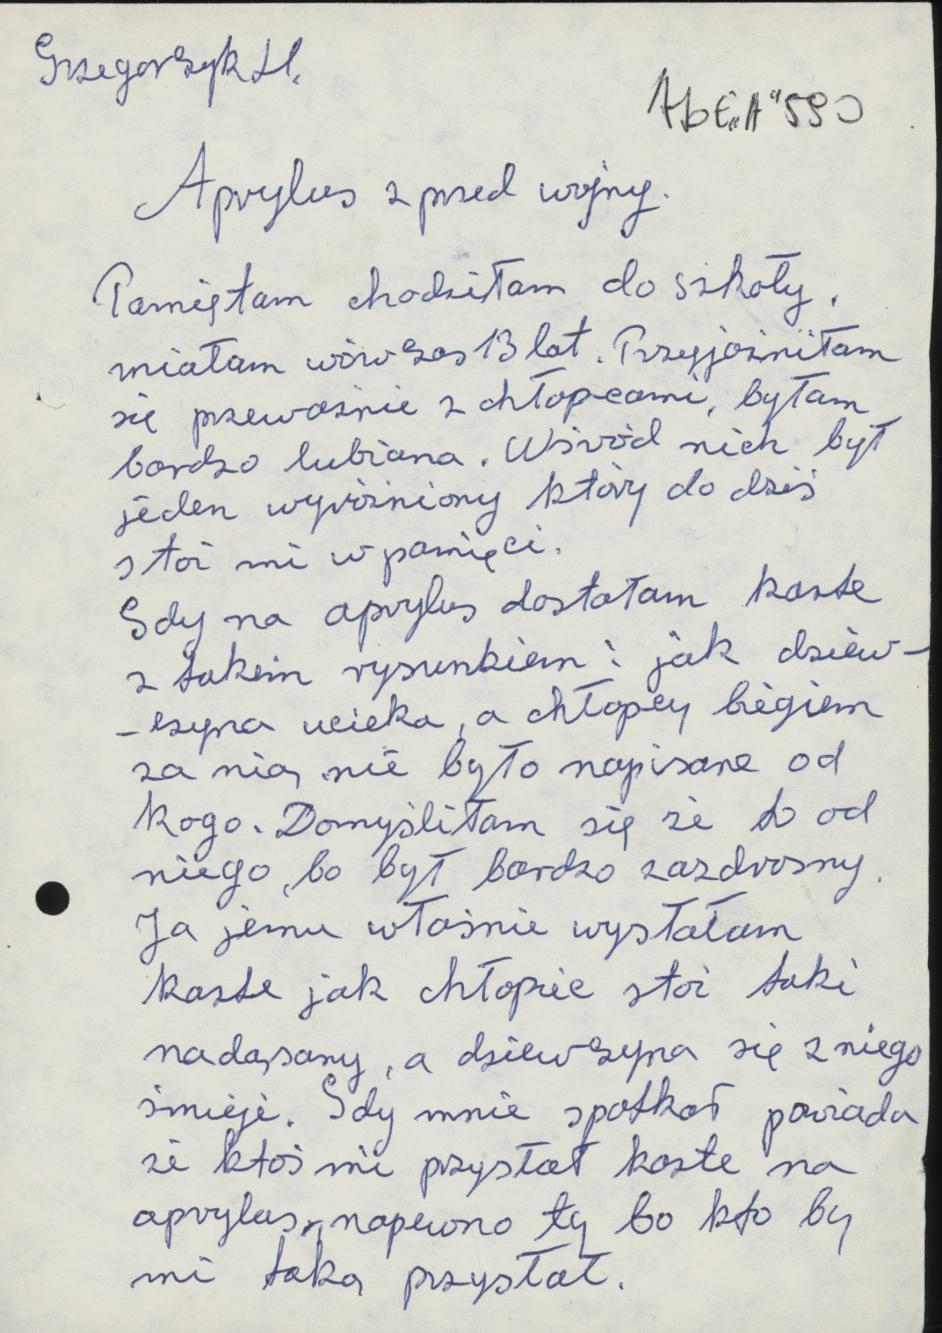 Grzegorzyk H.
AbE „A" 590
Aprylus z przed wojny.
Pamiętam chodziłam do szkoły,
miałam wówczas 13 lat. Przyjaźniłam
się przeważnie z chłopcami, byłam
bardzo lubiana. Wśród nich był
jeden wyróżniony który do dziś
stoi mi w pamięci.
Gdy na aprylus dostałam karte
z takim rysunkiem: jak dziew-
-czyna ucieka, a chłopcy biegiem
za nią, nie było napisane od
kogo. Domyśliłam się że to od
niego, bo był bardzo zazdrosny.
Ja jemu właśnie wysłałam
karte jak chłopiec stoi taki
nadąsany, a dziewczyna się z niego
śmieje. Gdy mnie spotkał powiada
że ktoś mi przysłał karte na
aprylus, napewno ty bo kto by
mi taką przysłał.